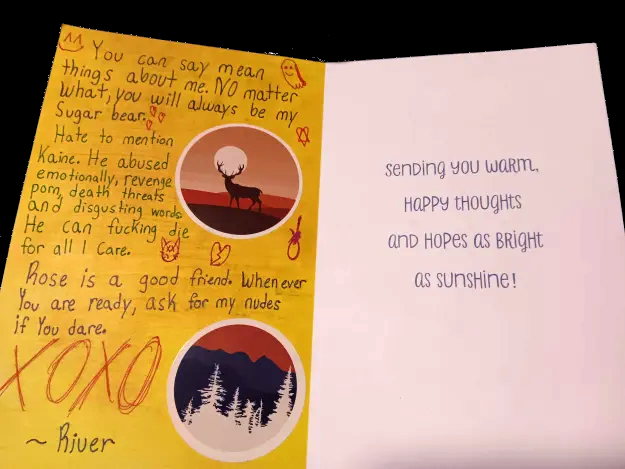 You can say mean
things about me. NO matter
what, you will always be my
Sugar bear.
Hate to mention
Kaine. He abused
emotionally, revenge
porn, death threats
and disgusting words
He can fucking die
for all I care.
Rose is a good friend. Whenever
You are ready, ask for my nudes
if You dare.
XOXO
~ River
sending you warm,
Happy thoughts
and Hopes as Bright
as sunshine!